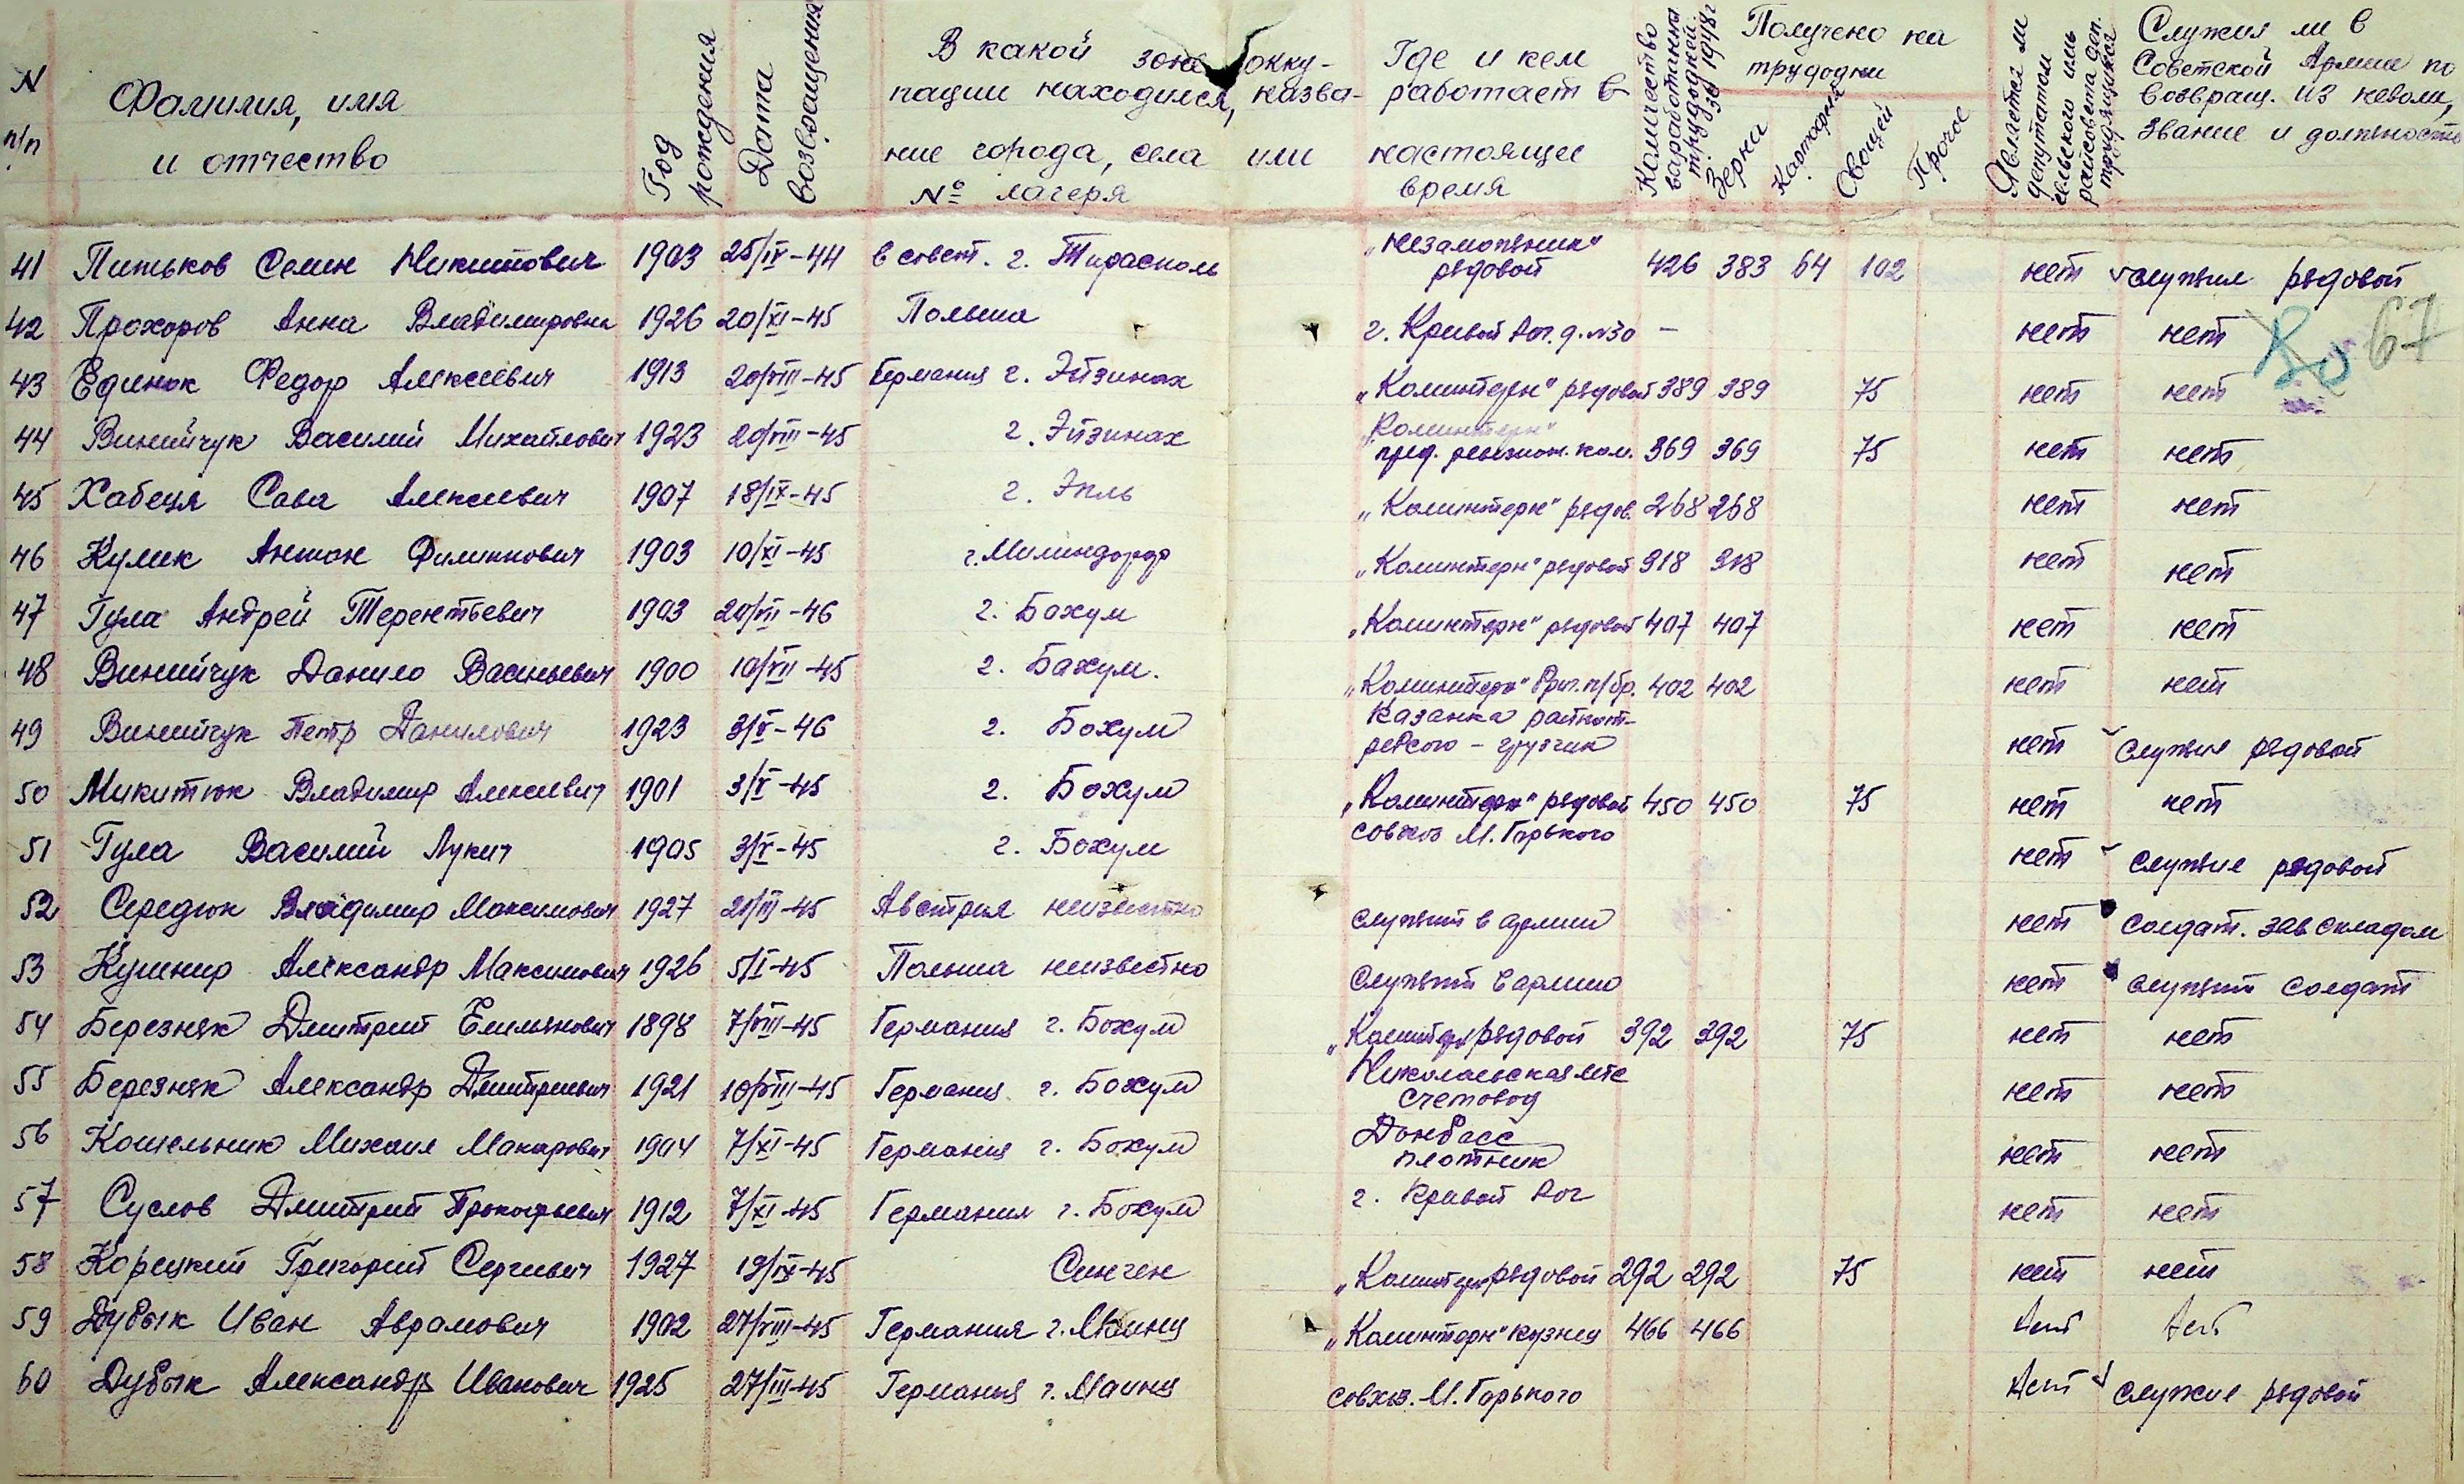 N п/п
Фамилия, имя и отчество
Год рождения
Дата возвращения
В какой зоне окку-
пации находился, назва-
ние города, села или
№ лагеря
Где и кем
работает в
настоящее
время
Количество выработанных трудодней за 1948 г
Получено на трудодни
Зерна
Картофеля
Овощей
Прочее
Является ли депутатом сельского или райсовета деп. трудящихся
Служил ли в
Советской Армии по
возвращ. из неволи,
звание и должность
67
41 Питьков Семен Никитович 1903 25/IX-44 в совет. г. Тирасполь „Незаможник" рядовой 426 383 64 102 нет служил рядовой
42 Прохоров Анна Владимировна 1926 20/XI-45 Польша г. Кривой Рог. д. №30 – нет нет
43 Единок Федор Алексеевич 1913 20/VIII-45 Германия г. Эйзинах „Коминтерн" рядовой 389 389 75 нет нет
44 Винийчук Василий Михайлович 1923 20/VIII-45 г. Эйзинах „Коминтерн" пред. ревизион. ком. 369 369 75 нет нет
45 Хабеця Сава Алексеевич 1907 18/IX-45 г. Эпль „Коминтерн" рядов. 268 268 нет нет
46 Кулик Антон Филиппович 1903 10/XI-45 г. Милиндорф „Коминтерн" рядовой 318 318 нет нет
47 Гула Андрей Терентьевич 1903 20/VII-46 г. Бохум „Коминтерн" рядовой 407 407 нет нет
48 Винийчук Данило Васильевич 1900 10/VII-45 г. Бахум. „Коминтерн" бриг. п/бр. 402 402 нет нет
49 Винийчук Петр Данилович 1923 3/V-46 г. Бохум Казанка – грузчик нет служил рядовой
50 Микитюк Владимир Алексеевич 1901 3/V-45 г. Бохум „Коминтерн" рядовой 450 450 75 нет нет
51 Гула Василий Лукич 1905 3/V-45 г. Бохум совхоз М. Горького нет служил рядовой
52 Середюк Владимир Максимович 1927 21/III-45 Австрия неизвестно служит в армии нет солдат. зав складом
53 Кушнир Александр Максимович 1926 5/I-45 Польша неизвестно служит в армии нет служит солдат
54 Березняк Дмитрий Емильянович 1898 7/VIII-45 Германия г. Бохум „Коминтерн рядовой 392 392 75 нет нет
55 Березняк Александр Дмитриевич 1921 10/VIII-45 Германия г. Бохум Николаевская мтс счетовод нет нет
56 Кошельник Михаил Макарович 1904 7/XI-45 Германия г. Бохум Донбасс плотник нет нет
57 Суслов Дмитрий Прокофьевич 1912 7/XI-45 Германия г. Бохум г. Кривой Рог нет нет
58 Корецкий Григорий Сергиевич 1927 19/IX-45 Синген „Коминтерн рядовой 292 292 75 нет нет
59 Дубык Иван Аврамович 1902 27/VIII-45 Германия г. Маинц „Коминтерн" кузнец 466 466 нет нет
60 Дубык Александр Иванович 1925 27/III-45 Германия г. Маинц совхоз. М. Горького нет служил рядовой